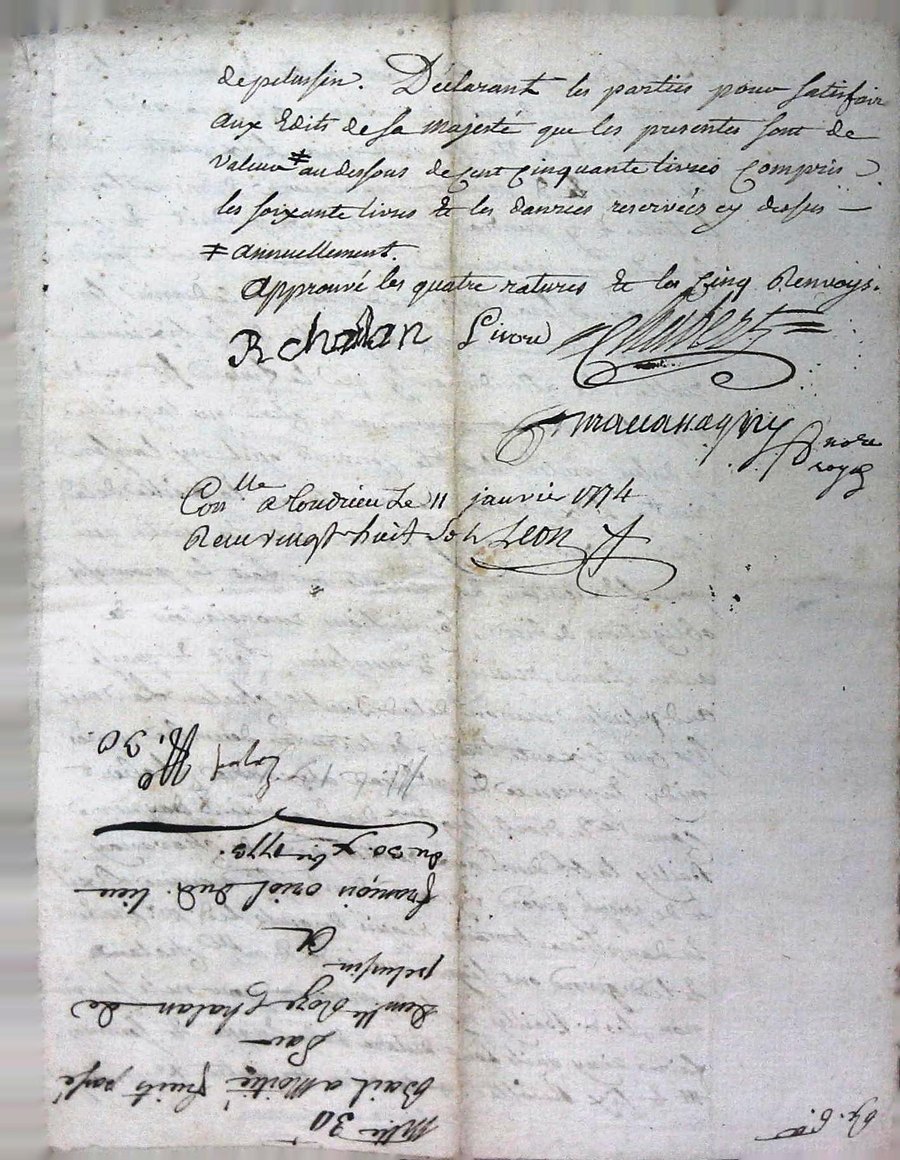 de pelussin. Déclarant les parties pour satisfair
aux Edits de sa majesté que les presentes sont de
valeur ≠ au dessous de Cent Cinquante livres Compris
les soixante livres & les danrées reservées cy dessus —
≠ annuellement.
Approuvé les quatre ratures & les Cinq Renvoys.
R chalan Chubert
nore
royal
Conlle a Condrieu Le 11 janvie 1774
Receu vingt huit sols Leon
Mtre 30
Bail a Moitié fruits passé
Par
Demlle Roze Chalan de
pelussin
A
françois oriol dud. lieu
du 30 xbre 1773.
No. 30